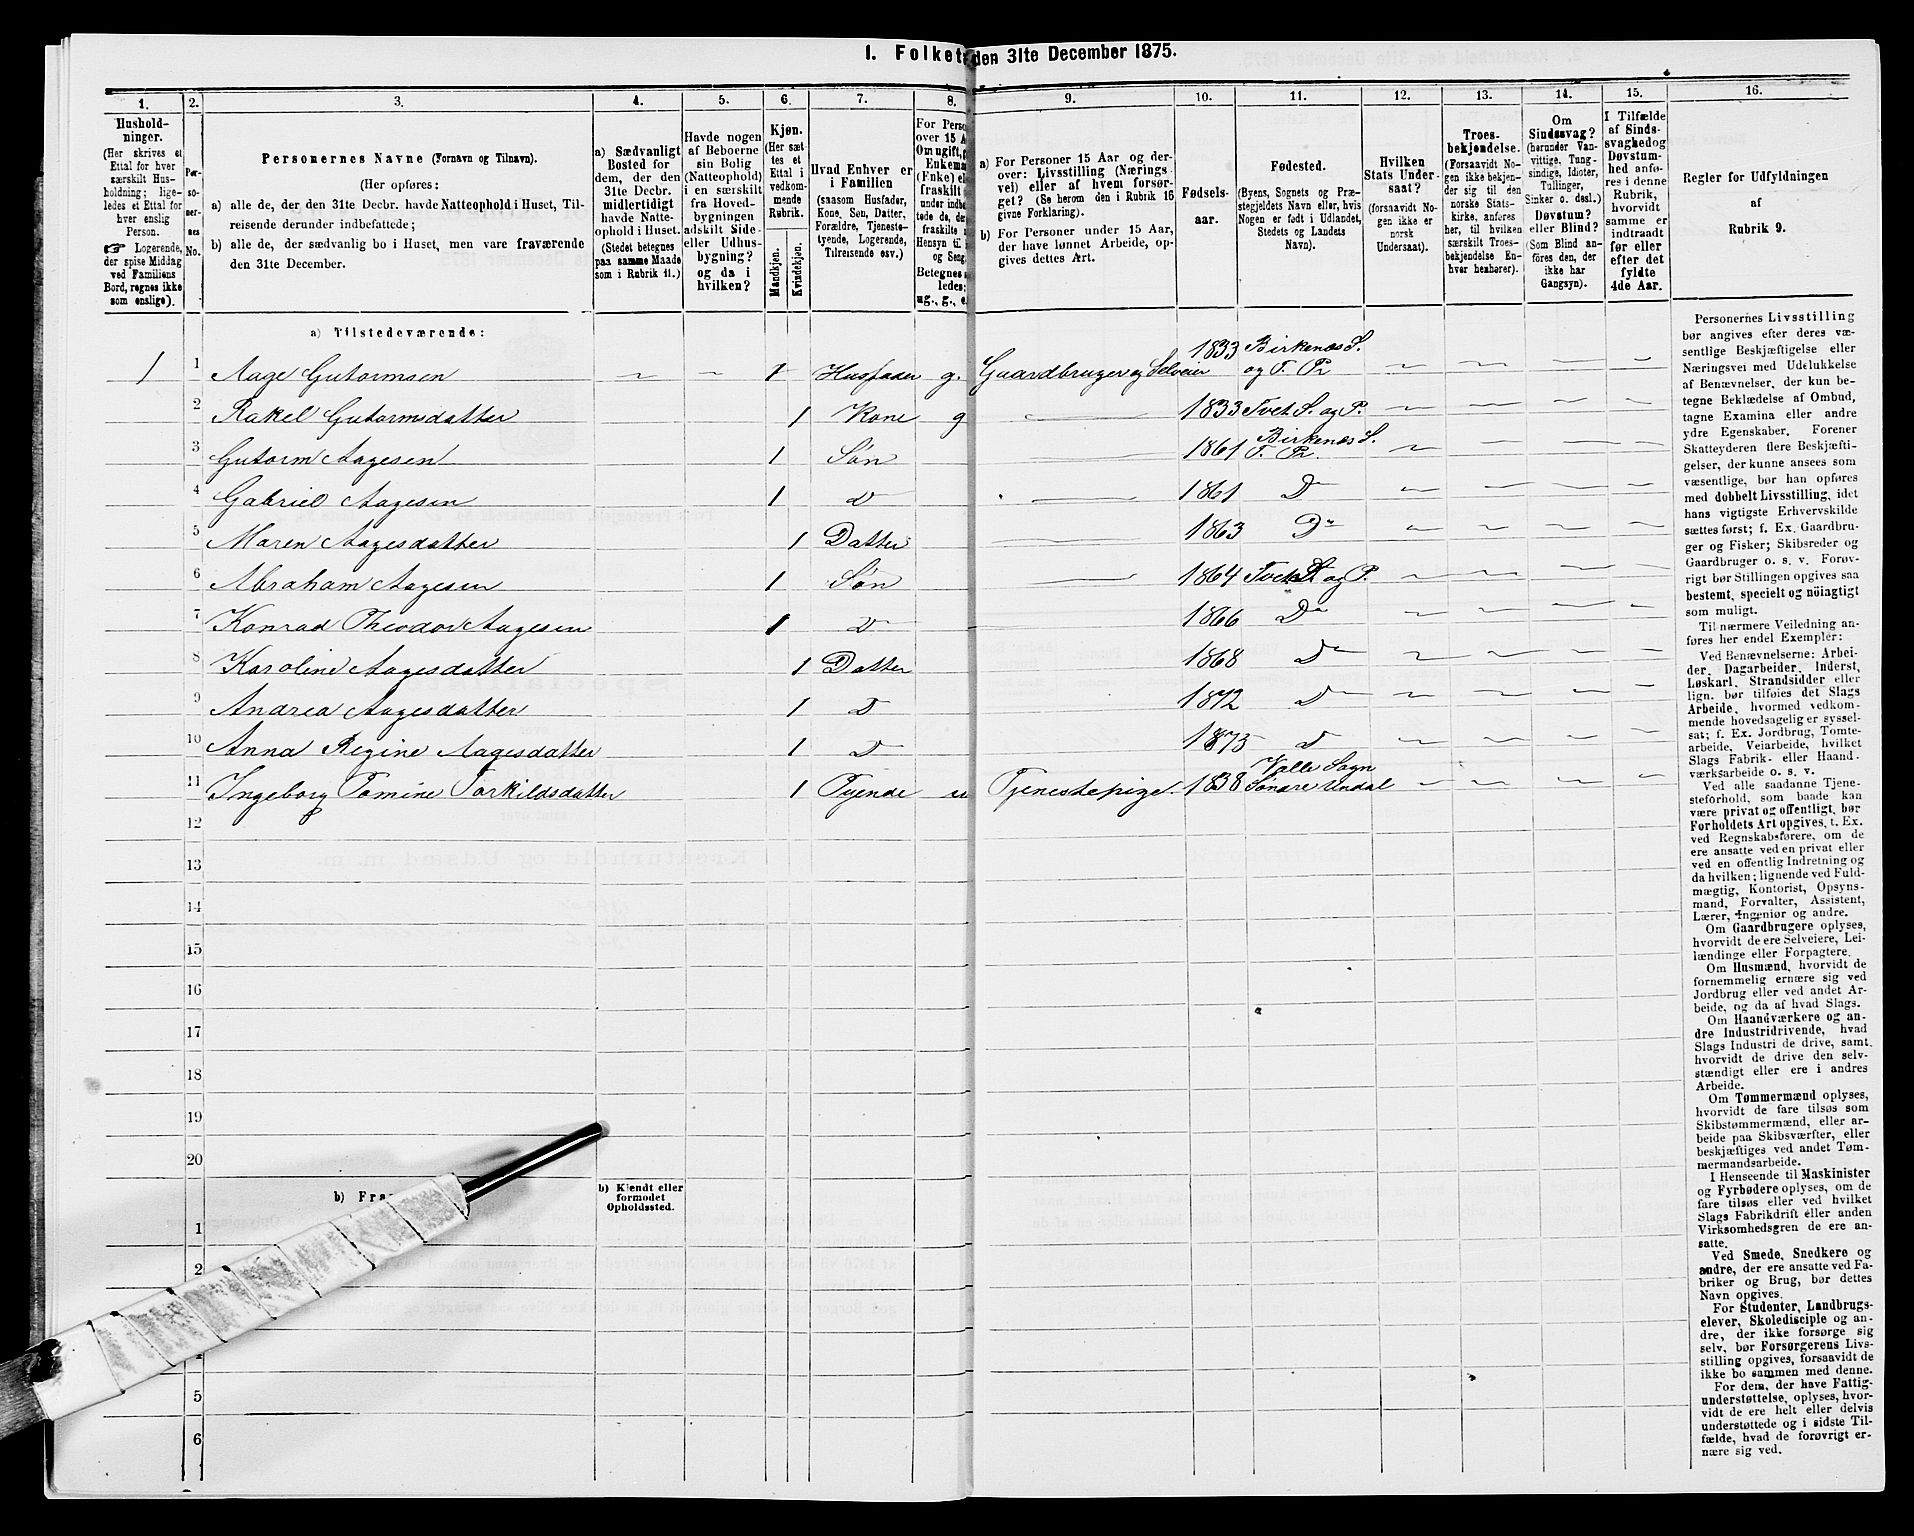 I. Folket den 31te December 1875.
1. 2. 3. 4. 5. 6. 7. 8. 9. 10. 11. 12. 13. 14. 15. 16.
Hushold-
ninger.
(Her skrives et
Ettal for hver
særskilt Hus-
holdning; lige-
ledes et Ettal for
hver enslig
Person.
☞ Logerende,
der spise Middag
ved Familiens
Bord, regnes ikke
som enslige).
Per-
so-
ner-
nes
No.
Personernes Navne (Fornavn og Tilnavn).
(Her opføres:
a) alle de, der den 31te Decbr. havde Natteophold i Huset, Til-
reisende derunder indbefattede;
b) alle de, der sædvanlig bo i Huset, men vare fraværende
den 31te December.
a) Sædvanligt
Bosted for
dem, der den
31te Decbr.
midlertidigt
havde Natte-
ophold i Huset.
(Stedet betegnes
paa samme Maade
som i Rubrik 11.)
Havde nogen
af Beboerne
sin Bolig
(Natteophold)
i en særskilt
fra Hoved-
bygningen
adskilt Side-
eller Udhus-
bygning?
og da i
hvilken?
Kjøn.
(Her sæt-
tes et
Ettal i
vedkom-
mende
Rubrik.
Mandkjøn.
Kvindekjøn.
Hvad Enhver er
i Familien
(saasom Husfader,
Kone, Søn, Datter,
Forældre, Tjeneste-
tyende, Logerende,
Tilreisende osv.)
For Perso
over 15 A
Om ugift,
Enkema
(Fnke) el
fraskilt
under indbe
tede de, der
fraskilte
Hensyn til
og Seng
Betegnes s
ledes:
ug., g., e.
a) For Personer 15 Aar og der-
over: Livsstilling (Nærings-
vei) eller af hvem forsør-
get? (Se herom den i Rubrik 16
givne Forklaring).
b) For Personer under 15 Aar,
der have lønnet Arbeide, op-
gives dettes Art.
Fødsels-
aar.
Fødested.
(Byens, Sognets og Præ-
stegjeldets Navn eller, hvis
Nogen er født i Udlandet,
Stedets og Landets
Navn).
Hvilken
Stats Under-
saat?
(forsaavidt No-
gen ikke er
norsk
Undersaat).
Troes-
bekjendelse.
(Forsaavidt No-
gen ikke bekjen-
der sig til den
norske Stats-
kirke, anføres
her, til hvilken
særskilt Troes-
bekjendelse En-
hver henhører).
Om
Sindssvag?
(herunder Van-
vittige, Tung-
sindige, Idioter,
Tullinger,
Sinker o. desl.)
Døvstum?
eller Blind?
(Som Blind an-
føres den, der
ikke har
Gangsyn).
I Tilfælde
af Sinds-
svaghed og
Døvstum-
hed anfø-
res i denne
Rubrik,
hvorvidt
samme er
indtraadt
før eller
efter det
fyldte
4de Aar.
Regler for Udfyldningen
af
Rubrik 9.
a) Tilstedeværende:
1 1 Aage Gutormsen 1 Husfader g. Gaardbruger og Selveier 1833 Birkenæs S.
og T. Pr
2 Rakel Gutormsdatter 1 Kone g 1833 Tvet S. og P.
3 Gutorm Aagesen 1 Søn 1861 Birkenæs S.
T. Pr.
4 Gabriel Aagesen 1 D 1861 Do
5 Maren Aagesdatter 1 Datter 1863 Do
6 Abraham Aagesen 1 Søn 1864 Tvet S. og P.
7 Konrad Theodor Aagesen 1 D 1866 Do
8 Karoline Aagesdatter 1 Datter 1868 Do
9 Andrea Aagesdatter 1 D 1872 Do
10 Anna Regine Aagesdatter 1 D 1873 D
11 Ingeborg Tomine Torkildsdatter 1 Tyende u Tjenestepige. 1838 Valle Sogn
Søndre Undal
12
13
14
15
16
17
18
19
20
b) Fra
b) Kjendt eller
formodet
Opholdssted.
1
2
5
6
Personernes Livsstilling
bør angives efter deres væ-
sentlige Beskjæftigelse eller
Næringsvei med Udelukkelse
af Benævnelser, der kun be-
tegne Beklædelse af Ombud,
tagne Examina eller andre
ydre Egenskaber. Forener
Skatteyderen flere Beskjæfti-
gelser, der kunne ansees som
væsentlige, bør han opføres
med dobbelt Livsstilling, idet
hans vigtigste Erhvervskilde
sættes først; f. Ex. Gaardbru-
ger og Fisker; Skibsreder og
Gaardbruger o. s. v. Forøv-
rigt bør Stillingen opgives saa
bestemt, specielt og nöiagtigt
som muligt.
Til nærmere Veiledning an-
føres her endel Exempler:
Ved Benævnelserne: Arbei-
der, Dagarbeider, Inderst,
Løskarl, Strandsidder eller
lign. bør tilføies det Slags
Arbeide, hvormed vedkom-
mende hovedsagelig er syssel-
sat; f. Ex. Jordbrug, Tomte-
arbeide, Veiarbeide, hvilket
Slags Fabrik- eller Haand-
værksarbeide o. s. v.
Ved alle saadanne Tjene-
steforhold, som baade kan
være privat og offentligt, bør
Forholdets Art opgives, t. Ex.
ved Regnskabsførere, om de
ere ansatte ved en privat eller
ved en offentlig Indretning og
da hvilken; lignende ved Fuld-
mægtig, Kontorist, Opsyns-
mand, Forvalter, Assistent,
Lærer, Ingeniør og andre.
Om Gaardbrugere oplyses,
hvorvidt de ere Selveiere, Lei-
lændinge eller Forpagtere.
Om Husmænd, hvorvidt de
fornemmelig ernære sig ved
Jordbrug eller ved andet Ar-
beide, og da af hvad Slags.
Om Haandværkere og an-
dre Industridrivende, hvad
Slags Industri de drive, samt
hvorvidt de drive den selv-
stændigt eller ere i andres
Arbeide.
Om Tømmermænd oplyses,
hvorvidt de fare tilsøs som
Skibstømmermænd, eller ar-
beide paa Skibsværfter, eller
beskjæftiges ved andet Tøm-
mermandsarbeide.
I Henseende til Maskinister
og Fyrbødere oplyses, om de
fare tilsøs eller ved hvilket
Slags Fabrikdrift eller anden
Virksomhedsgren de ere an-
satte.
Ved Smede, Snedkere og
andre, der ere ansatte ved Fa-
briker og Brug, bør dettes
Navn opgives.
For Studenter, Landbrugs-
elever, Skoledisciple og an-
dre, der ikke forsørge sig
selv, bør Forsørgerens Livs-
stilling opgives, forsaavidt de
ikke bo sammen med denne.
For dem, der have Fattig-
understøttelse, oplyses, hvor-
vidt de ere helt eller delvis
understøttede og i sidste Til-
fælde, hvad de forøvrigt er-
nære sig ved.